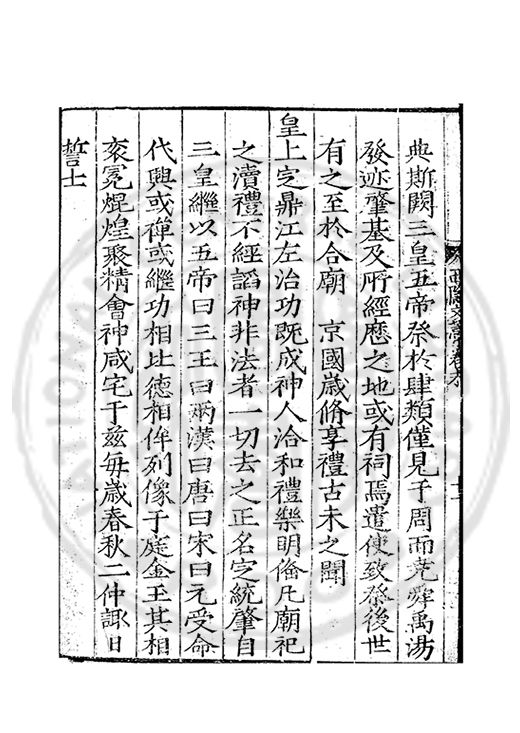 典斯闕三皇五帝祭於肆類僅見于周而堯舜禹湯
發迹肇基及所經歷之地或有祠焉遣使致祭後世
有之至於合廟　京國歲脩享禮古未之聞
皇上定鼎江左治功既成神人洽和禮樂明備凡廟祀
之瀆禮不經諂神非法者一切去之正名定統肇自
三皇繼以五帝曰三王曰兩漢曰唐曰宋曰元受命
代興或禪或繼功相比德相侔列像于庭金玉其相
袞冕焜煌聚精會神咸宅于茲每歲春秋二仲諏日
誓士